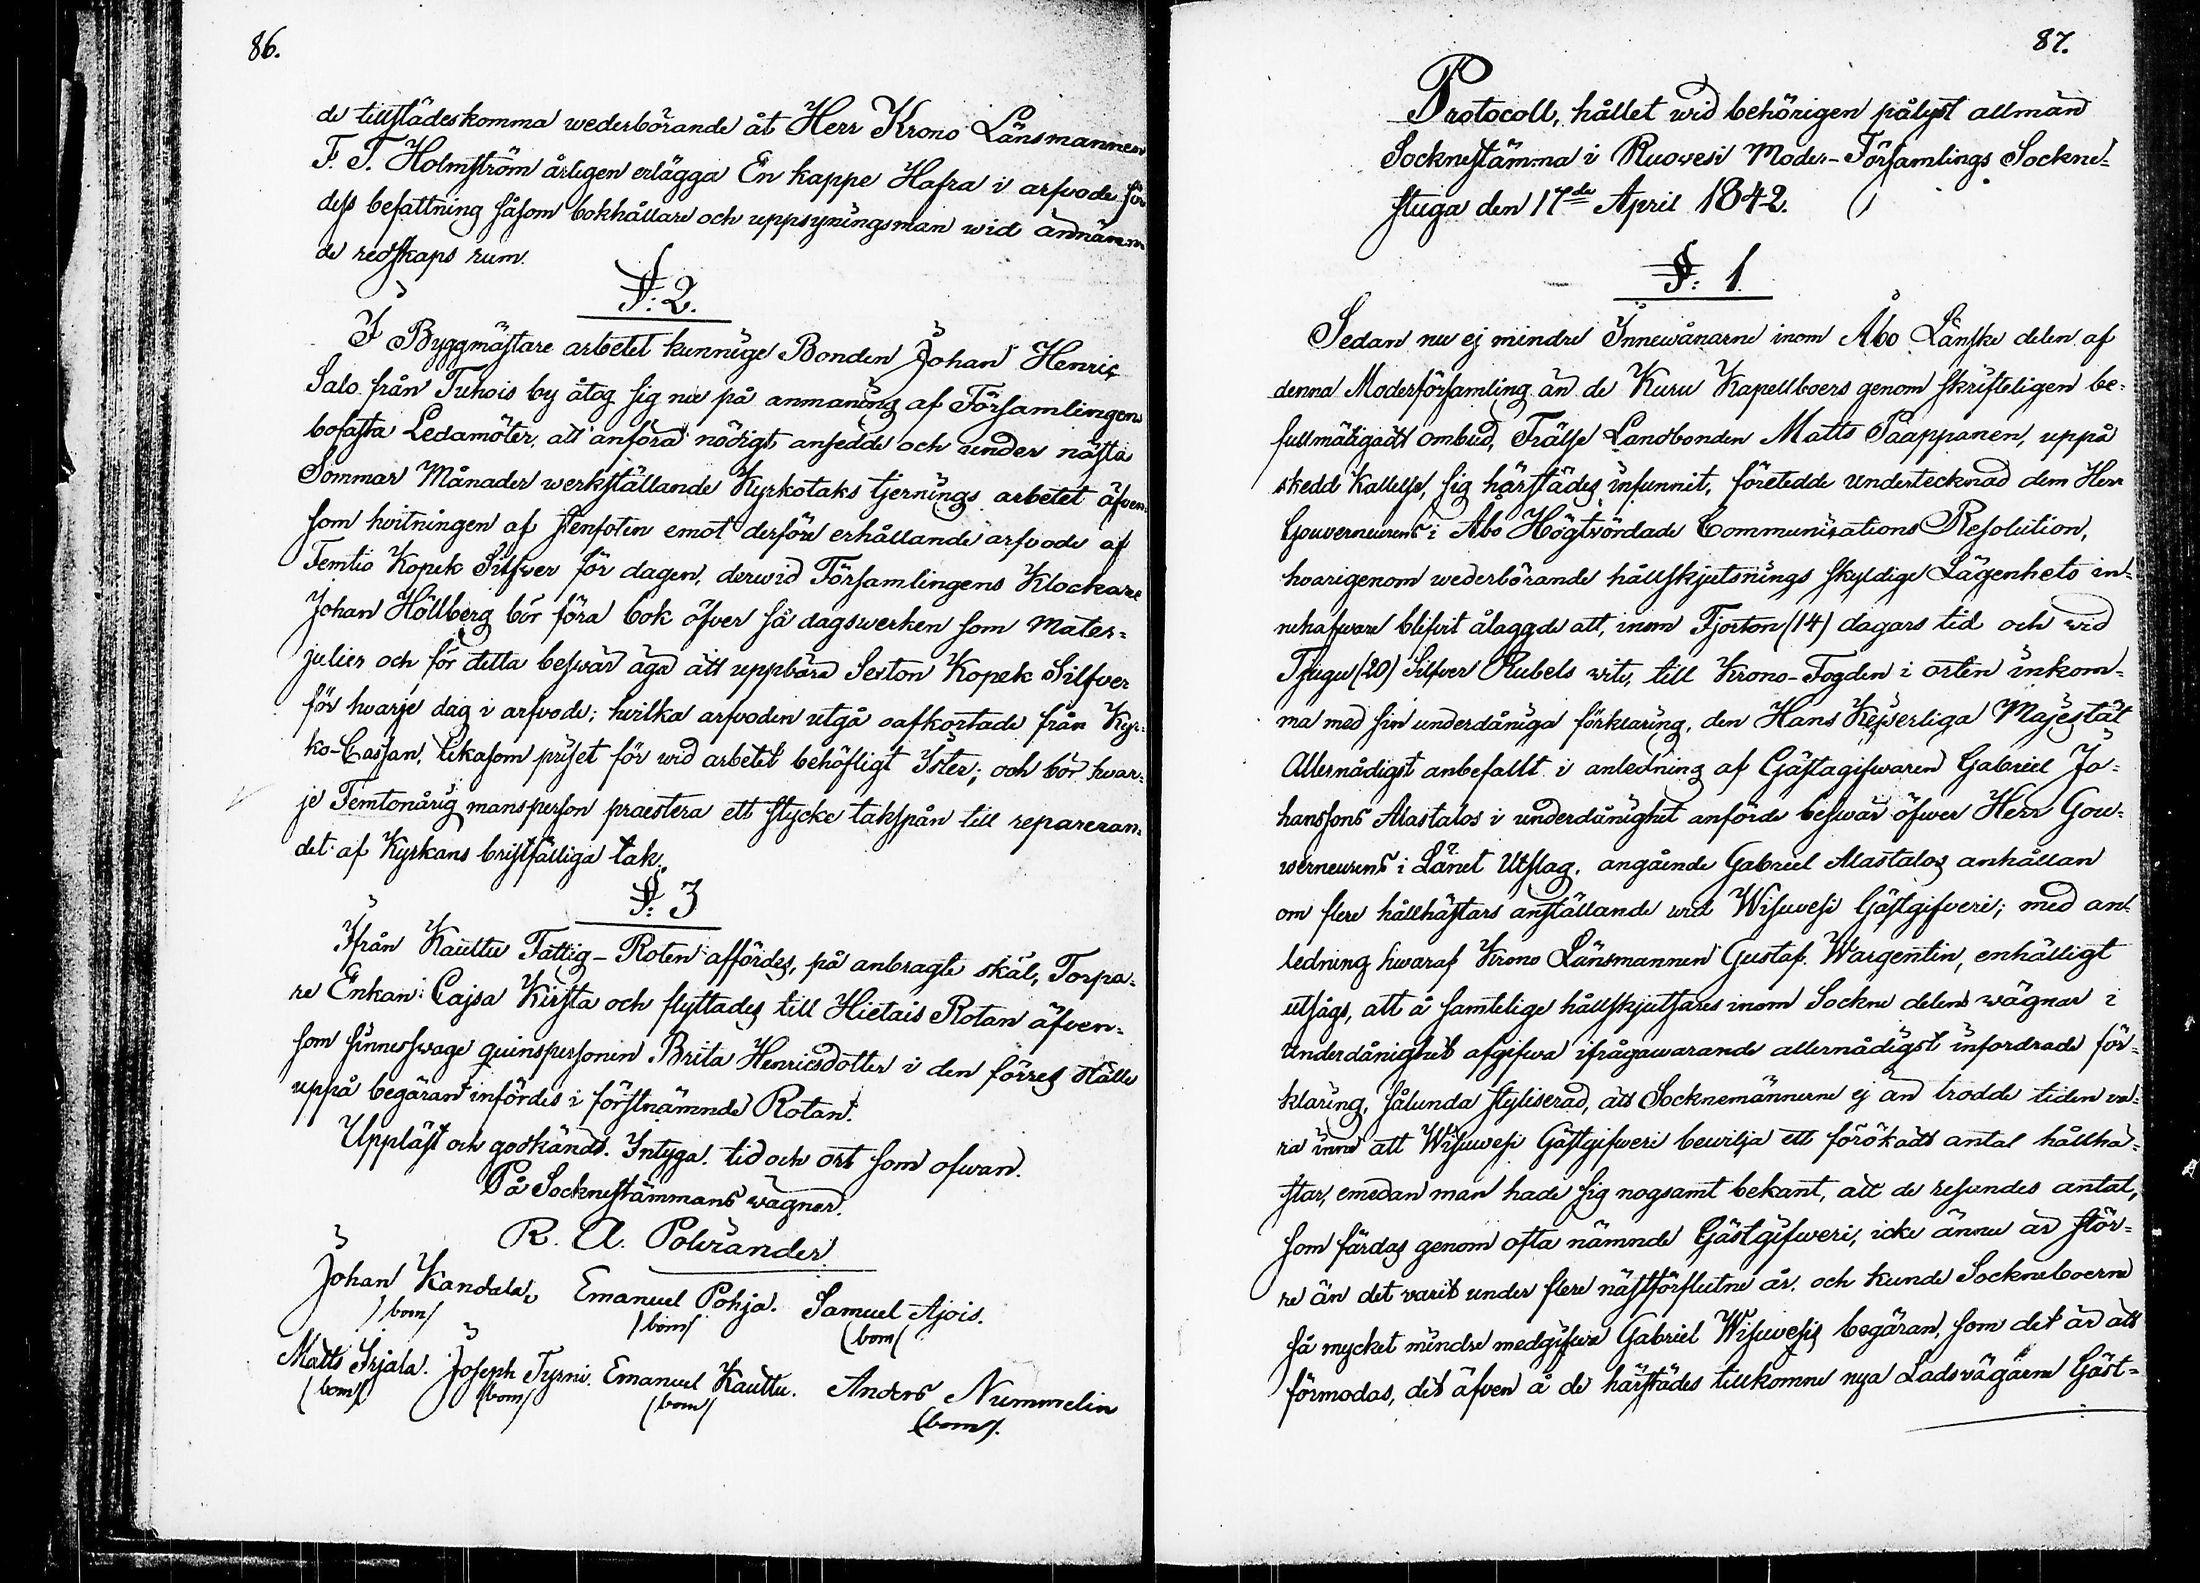 86.
de tillstädeskomma wederbörande åt Herr Krono Länsmannen
F. T. Holmström årligen erlägga En kappe Hafra i arfvode för
dess befattning såsom bokhållare och uppsyningsman wid annämn
de redskaps rum.
§: 2.
I Byggmästare arbetet kunnige Bonden Johan Henric
Salo från Tuhois by åtog sig nu på anmaning af Församlingens
bofasta Ledamöter, att anföra nödigt ansedde och under nästa
Sommar Månader werkställande Kyrkotaks tjernings arbetet äfven-
som hvitningen af stenfoten emot derföre erhållande arfvode af
Femtio Kopek Silfver för dagen, derwid Församlingens Klockare
Johan Höllberg bör föra bok öfver så dagswerken som Mater-
jalier och för detta beswär äga att uppbära Sexton Kopek Silfver
för hvarje dag i arfvode; hvilka arfvoden utgå oafkortade från Kyr-
ko-Cassan, likasom priset för wid arbetet behöfligt Ister; och bör hvar-
je Femtonårig mansperson praestera ett stycke takspån till repareran-
det af Kyrkans bristfälliga tak.
§: 3
Ifrån Kauttu Fattig-Roten affördes, på anbragte skäl, Torpa-
re Enkan: Cajsa Kirsta och flyttades till Hietais Rotan äfven-
som sinnesswage quinspersonen Brita Henricsdotter i den förres ställe
uppå begäran infördes i förstnämnde Rotan.
Uppläst och godkändt. Intyga. tid och ort som ofwan.
På Socknestämmans wägnar.
R. A. Polviander
Johan Kandala, Emanuel Pohja. Samuel Ajois.
/bom/ /bom/ /bom/
Matts Irjala. Joseph Tyrni. Emanuel Kauttu. Anders Nummelin
/bom/ /bom/ /bom/ /bom/.
87.
Protocoll, hållet wid behörigen pålyst allmän
Socknestämma i Ruowesi Moder-Församlings Sockne-
stuga den 17de April 1842.
§: 1.
Sedan nu ej mindre Innewånarne inom Åbo Länske delen af
denna Moderförsamling än de Kuru Kapellboers genom skrifteligen be-
fullmätigadt ombud, Frälse Landbonden Matts Paappanen, uppå
skedd kallelse, sig härstädes infunnit, företedde undertecknad dem Herr
Gouverneurens i Åbo Högtvördade Communications Resolution,
hvarigenom wederbörande hållskjutsnings skyldige Lägenhets in-
nehafware blifvit ålaggde att, inom Fjorton (14) dagars tid och wid
Tjugu (20) Silfver Rubels wite, till Krono-Fogden i orten inkom-
ma med sin underdåniga förklaring, den Hans Kejserliga Majestät
Allernådigst anbefallt i anledning af Gästagifwaren Gabriel Jo-
hanssons Alastalos i underdånighet anförde beswär öfwer Herr Gou-
werneurens i Länet Utslag, angående Gabriel Alastalos anhållan
om flere hållhästars anställande wid Wisuvesi Gästgifveri; med an-
ledning hwaraf Krono Länsmannen Gustaf Wargentin, enhälligt
utsågs, att å samtelige hållskjutsares inom Sockne delens wägnar i
underdånighet afgifwa ifrågawarande allernådigst infordrade för-
klaring, sålunda styliserad, att Socknemännerne ej än trodde tiden va-
ra inne att Wisuwesi Gästgifweri bewilja ett förökadt antal hållhä-
star, emedan man hade sig nogsamt bekant, att de resandes antal,
som färdas genom ofta nämnde Gästgifweri, icke ännu är stör-
re än det varit under flere nästförflutne år, och kunde Sockneboerne
så mycket mindre medgifwa Gabriel Wisuwesis begäran, som det är att
förmodas, det äfven å de härstädes tillkomne nya Ladsvägarne Gäst-